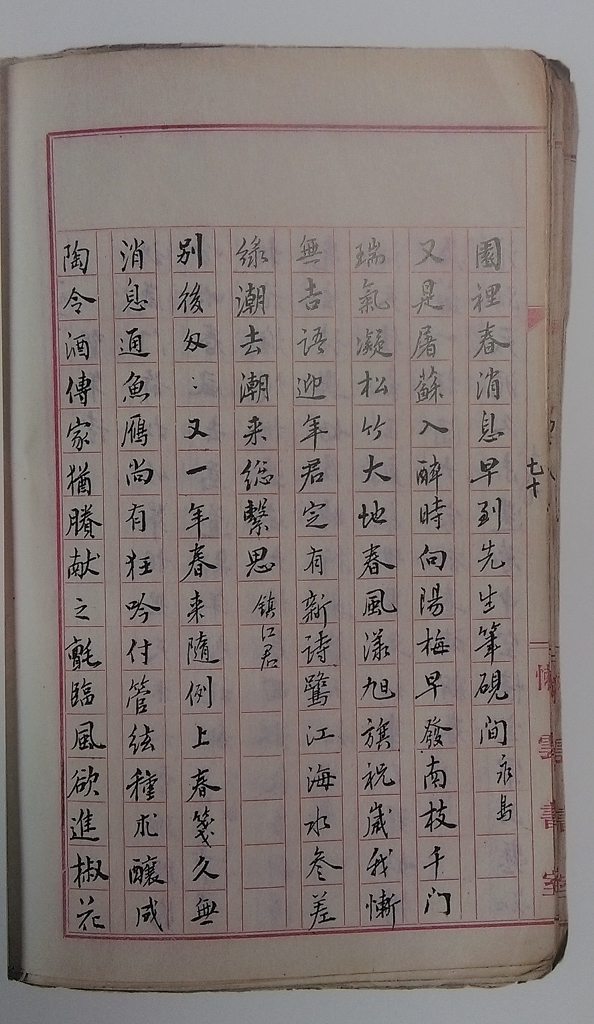 七十
園裡春消息早到先生筆硯間 永島
又是屠蘇入醉時向陽梅早發南枝千门
瑞氣凝松竹大地春風漾旭旗祝歲我慚
無吉語迎年君定有新詩鷺江海水参差
綠潮去潮来總繫思 镇江君
別後匆〻又一年春来隨例上春箋久無
消息通魚雁尚有狂吟付管絃種朮釀成
陶令酒傳家猶賸献之氈臨風欲進椒花
書室